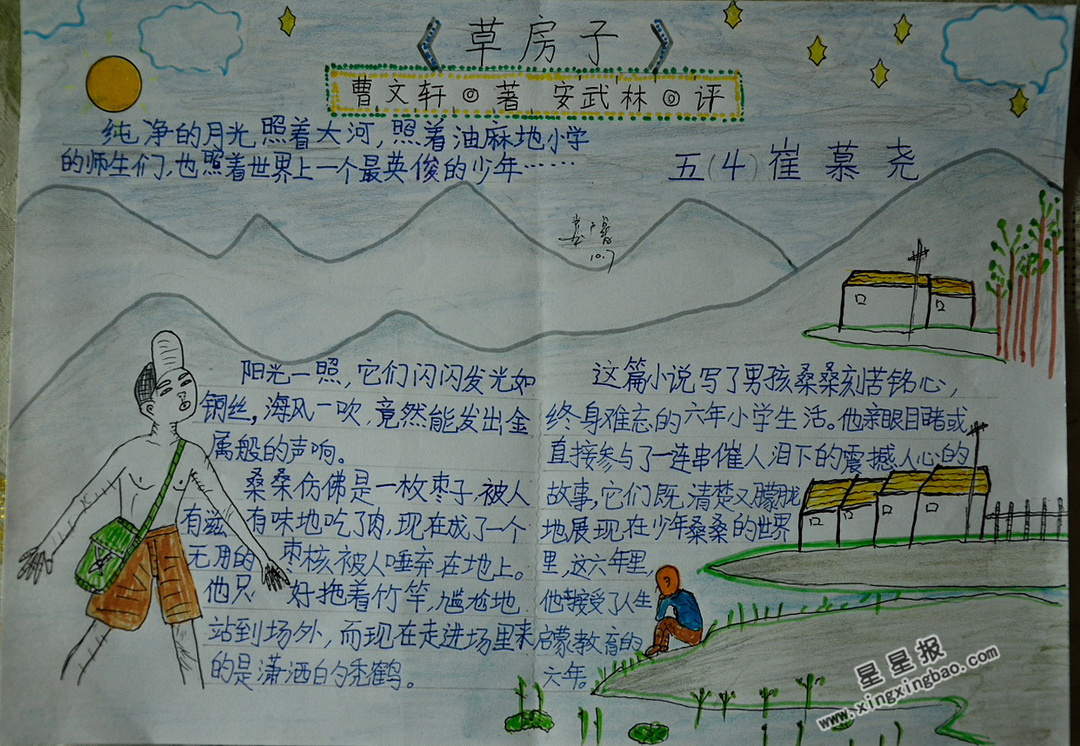 《草房子》
曹文轩◎著 安武林◎评
纯净的月光照着大河，照着油麻地小学
的师生们，也照着世界上一个最英俊的少年……
五(4)崔慕尧
10.7
阳光一照，它们闪闪发光如
铜丝，海风一吹，竟然能发出金
属般的声响。
桑桑仿佛是一枚枣子，被人
有滋有味地吃了肉，现在成了一个
无用的枣核被人唾弃在地上。
他只好拖着竹竿，尴尬地
站到场外，而现在走进场里来
的是潇洒的秃鹤。
这篇小说写了男孩桑桑刻苦铭心，
终身难忘的六年小学生活。他亲眼目睹或
直接参与了一连串催人泪下的震撼人心的
故事，它们既清楚又朦胧
地展现在少年桑桑的世界
里，这六年里，
他接受了人生
启蒙教育的
六年。
星星报
www.xingxingbao.com